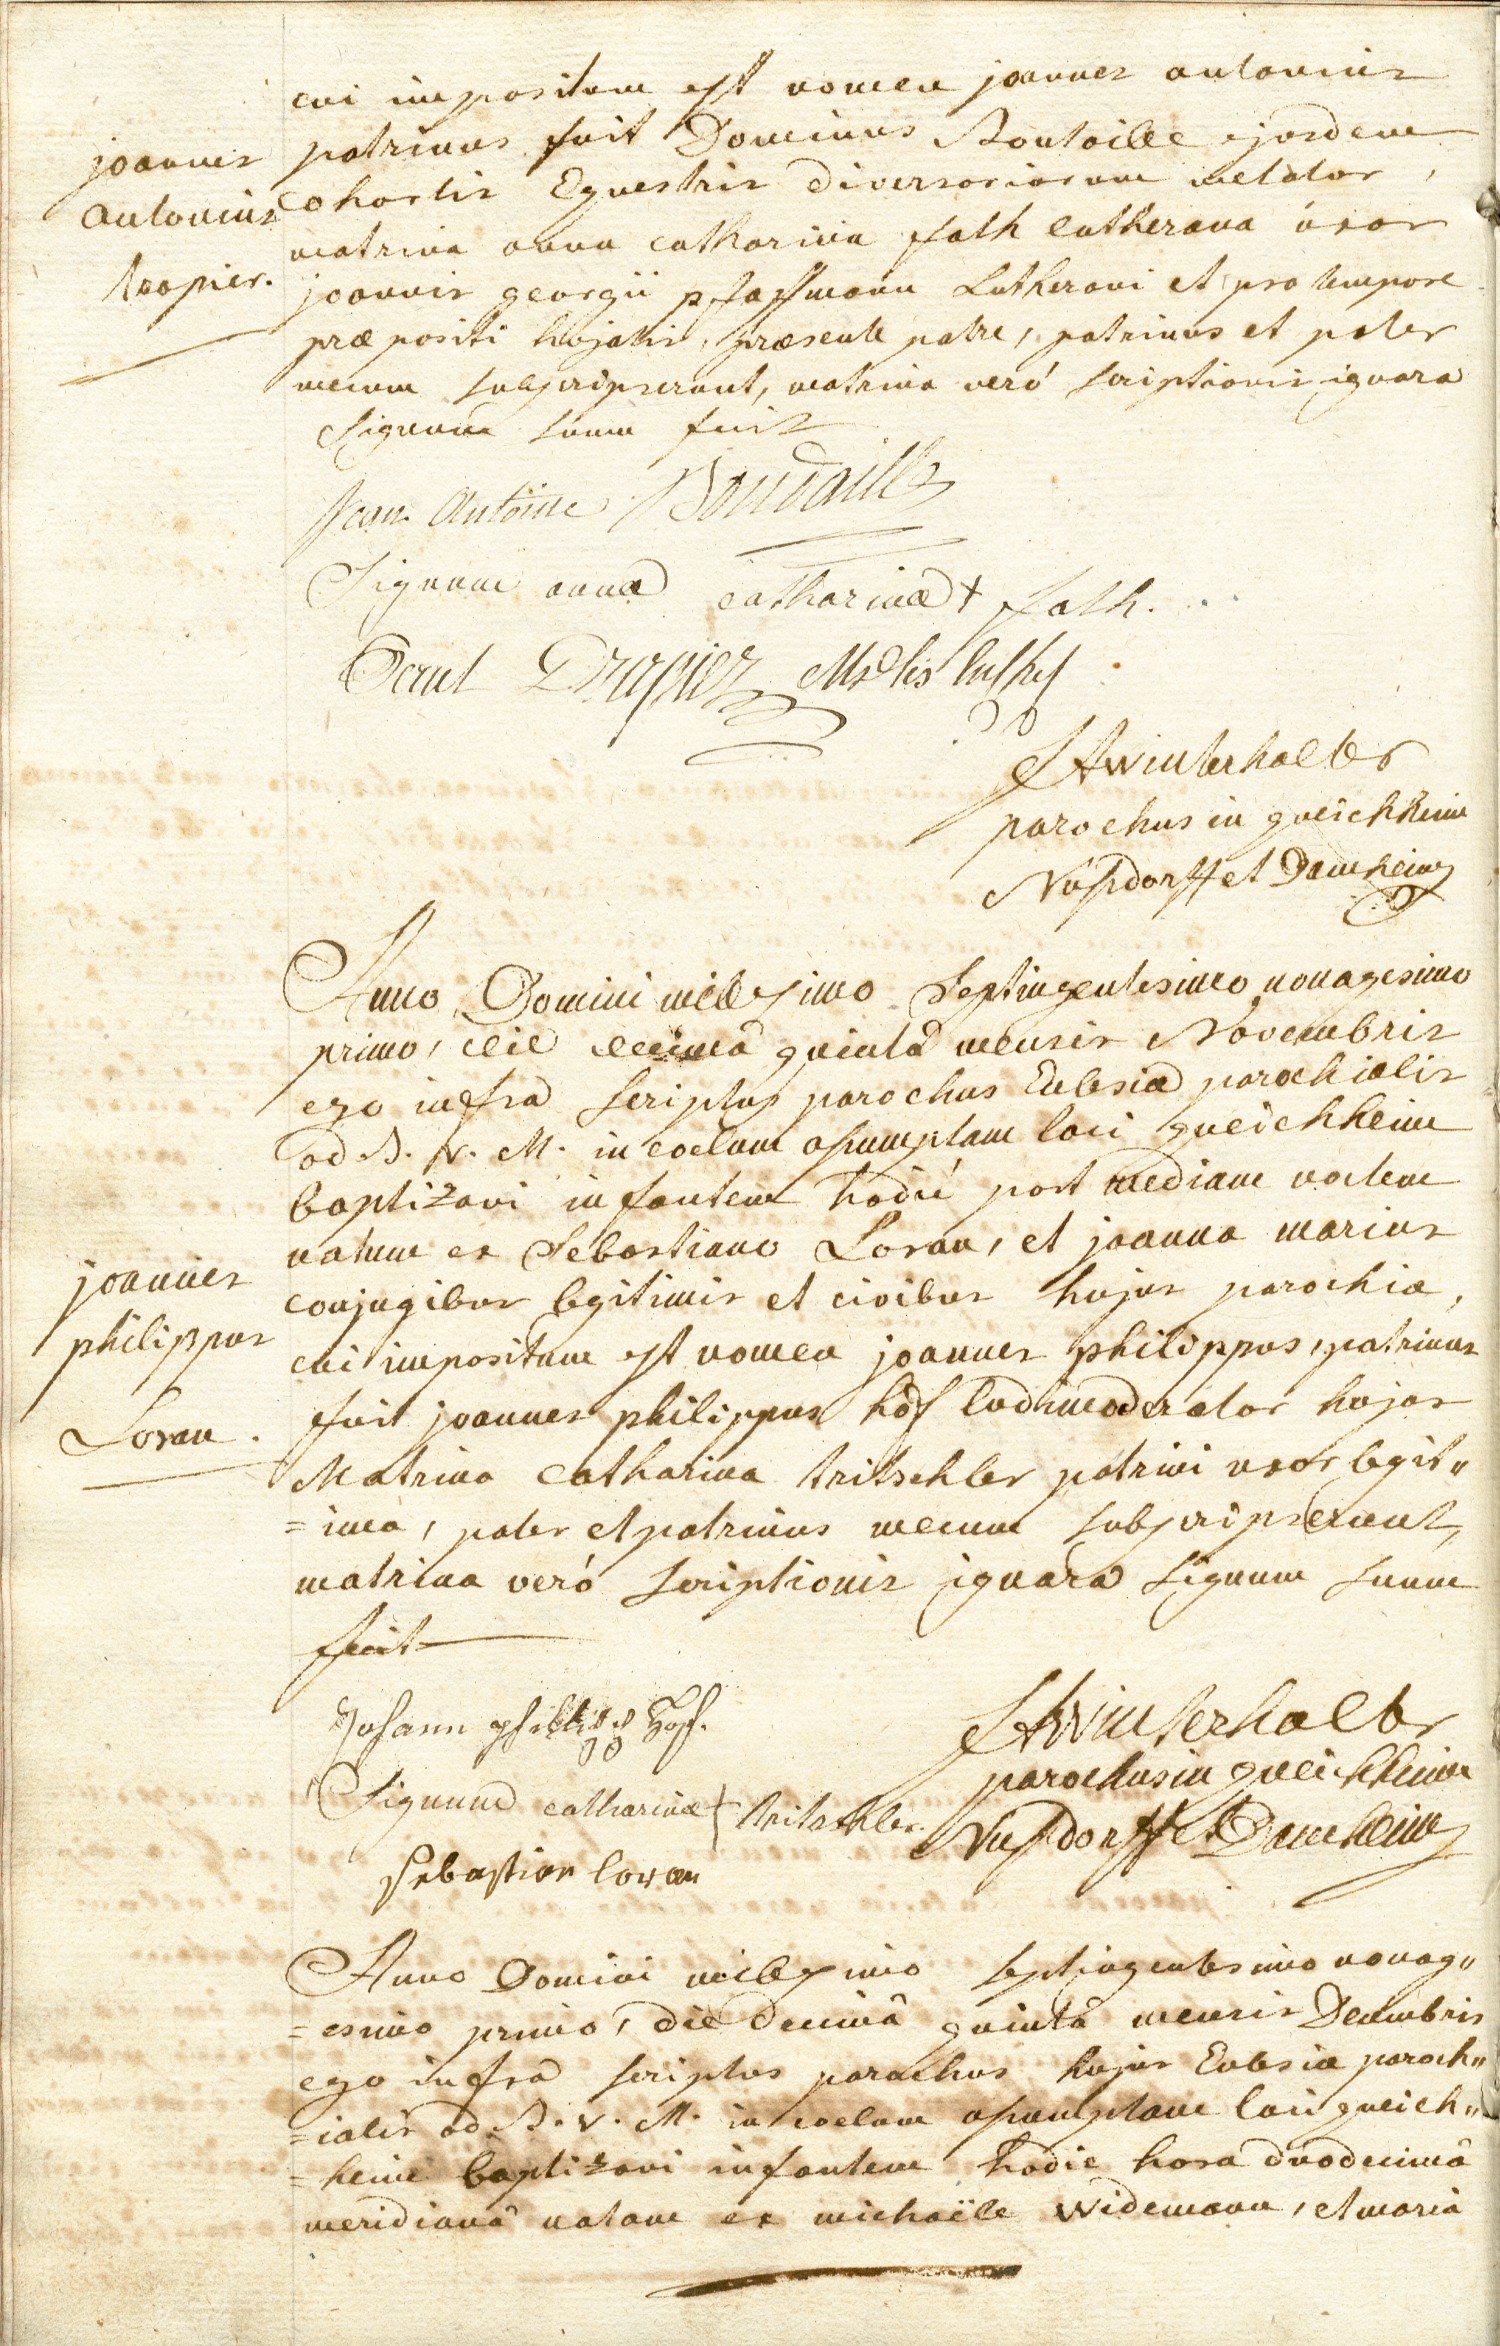 cui impositum est nomen joannes antonius
patrinus fuit Dominus Boutaille ejusdem
cohortis Equestris diversoriorum metator,
matrina anna catharina fath lutherana uxor
joannis georgii pfaffmann Lutherani et pro tempore
præpositi hujatis, præsente patre, patrinus et pater
mecum subscripserunt, matrina veró scriptionis ignara
Signum suum fecit
joannes
antonius
trapier.
Jean Antoine Boutaille
Signum annæ catharinæ + fath.
Drapier
FA Winterhalter
parochus in queichheim
Nusdorff et Damheim
Anno Domini millesimo Septingentesimo nonagesimo
primo, die decimâ quintâ mensis Novembris
ego infra scriptus parochus Eclesiæ parochialis
ad B. V. M. in coelum assumptam loci queichheim
baptizavi infantem hodié post mediam noctem
natum ex Sebastiano Loran, et joanna marius
conjugibus legitimis et civibus hujus parochiæ,
cui impositum est nomen joannes philippus, patrinus
fuit joannes philippus hôf ludimoderator hujas
Matrina Catharina tritschler patrini uxor legit"
=ima, pater et patrinus mecum subscripserunt,
matrina veró scriptionis ignara signum suum
fecit
joannes
philippus
Loran.
Johann philipp Hoff.
FA Winterhalter
parochus in queichheim
Nusdorff et Damheim
Signum catharinæ + tritschler.
Sebastian loran
Anno Domini millesimo septingentesimo nonag"
=esimo primo, die decimâ quintâ mensis Decembris
ego infra scriptus parochus hujus Eclesiæ paroch"
=ialis ad B. V. M. in coelum assumptam loci queich"
=heim baptizavi infantem hodie hora duodecimâ
meridianâ natam ex michaële Widemann, et maria